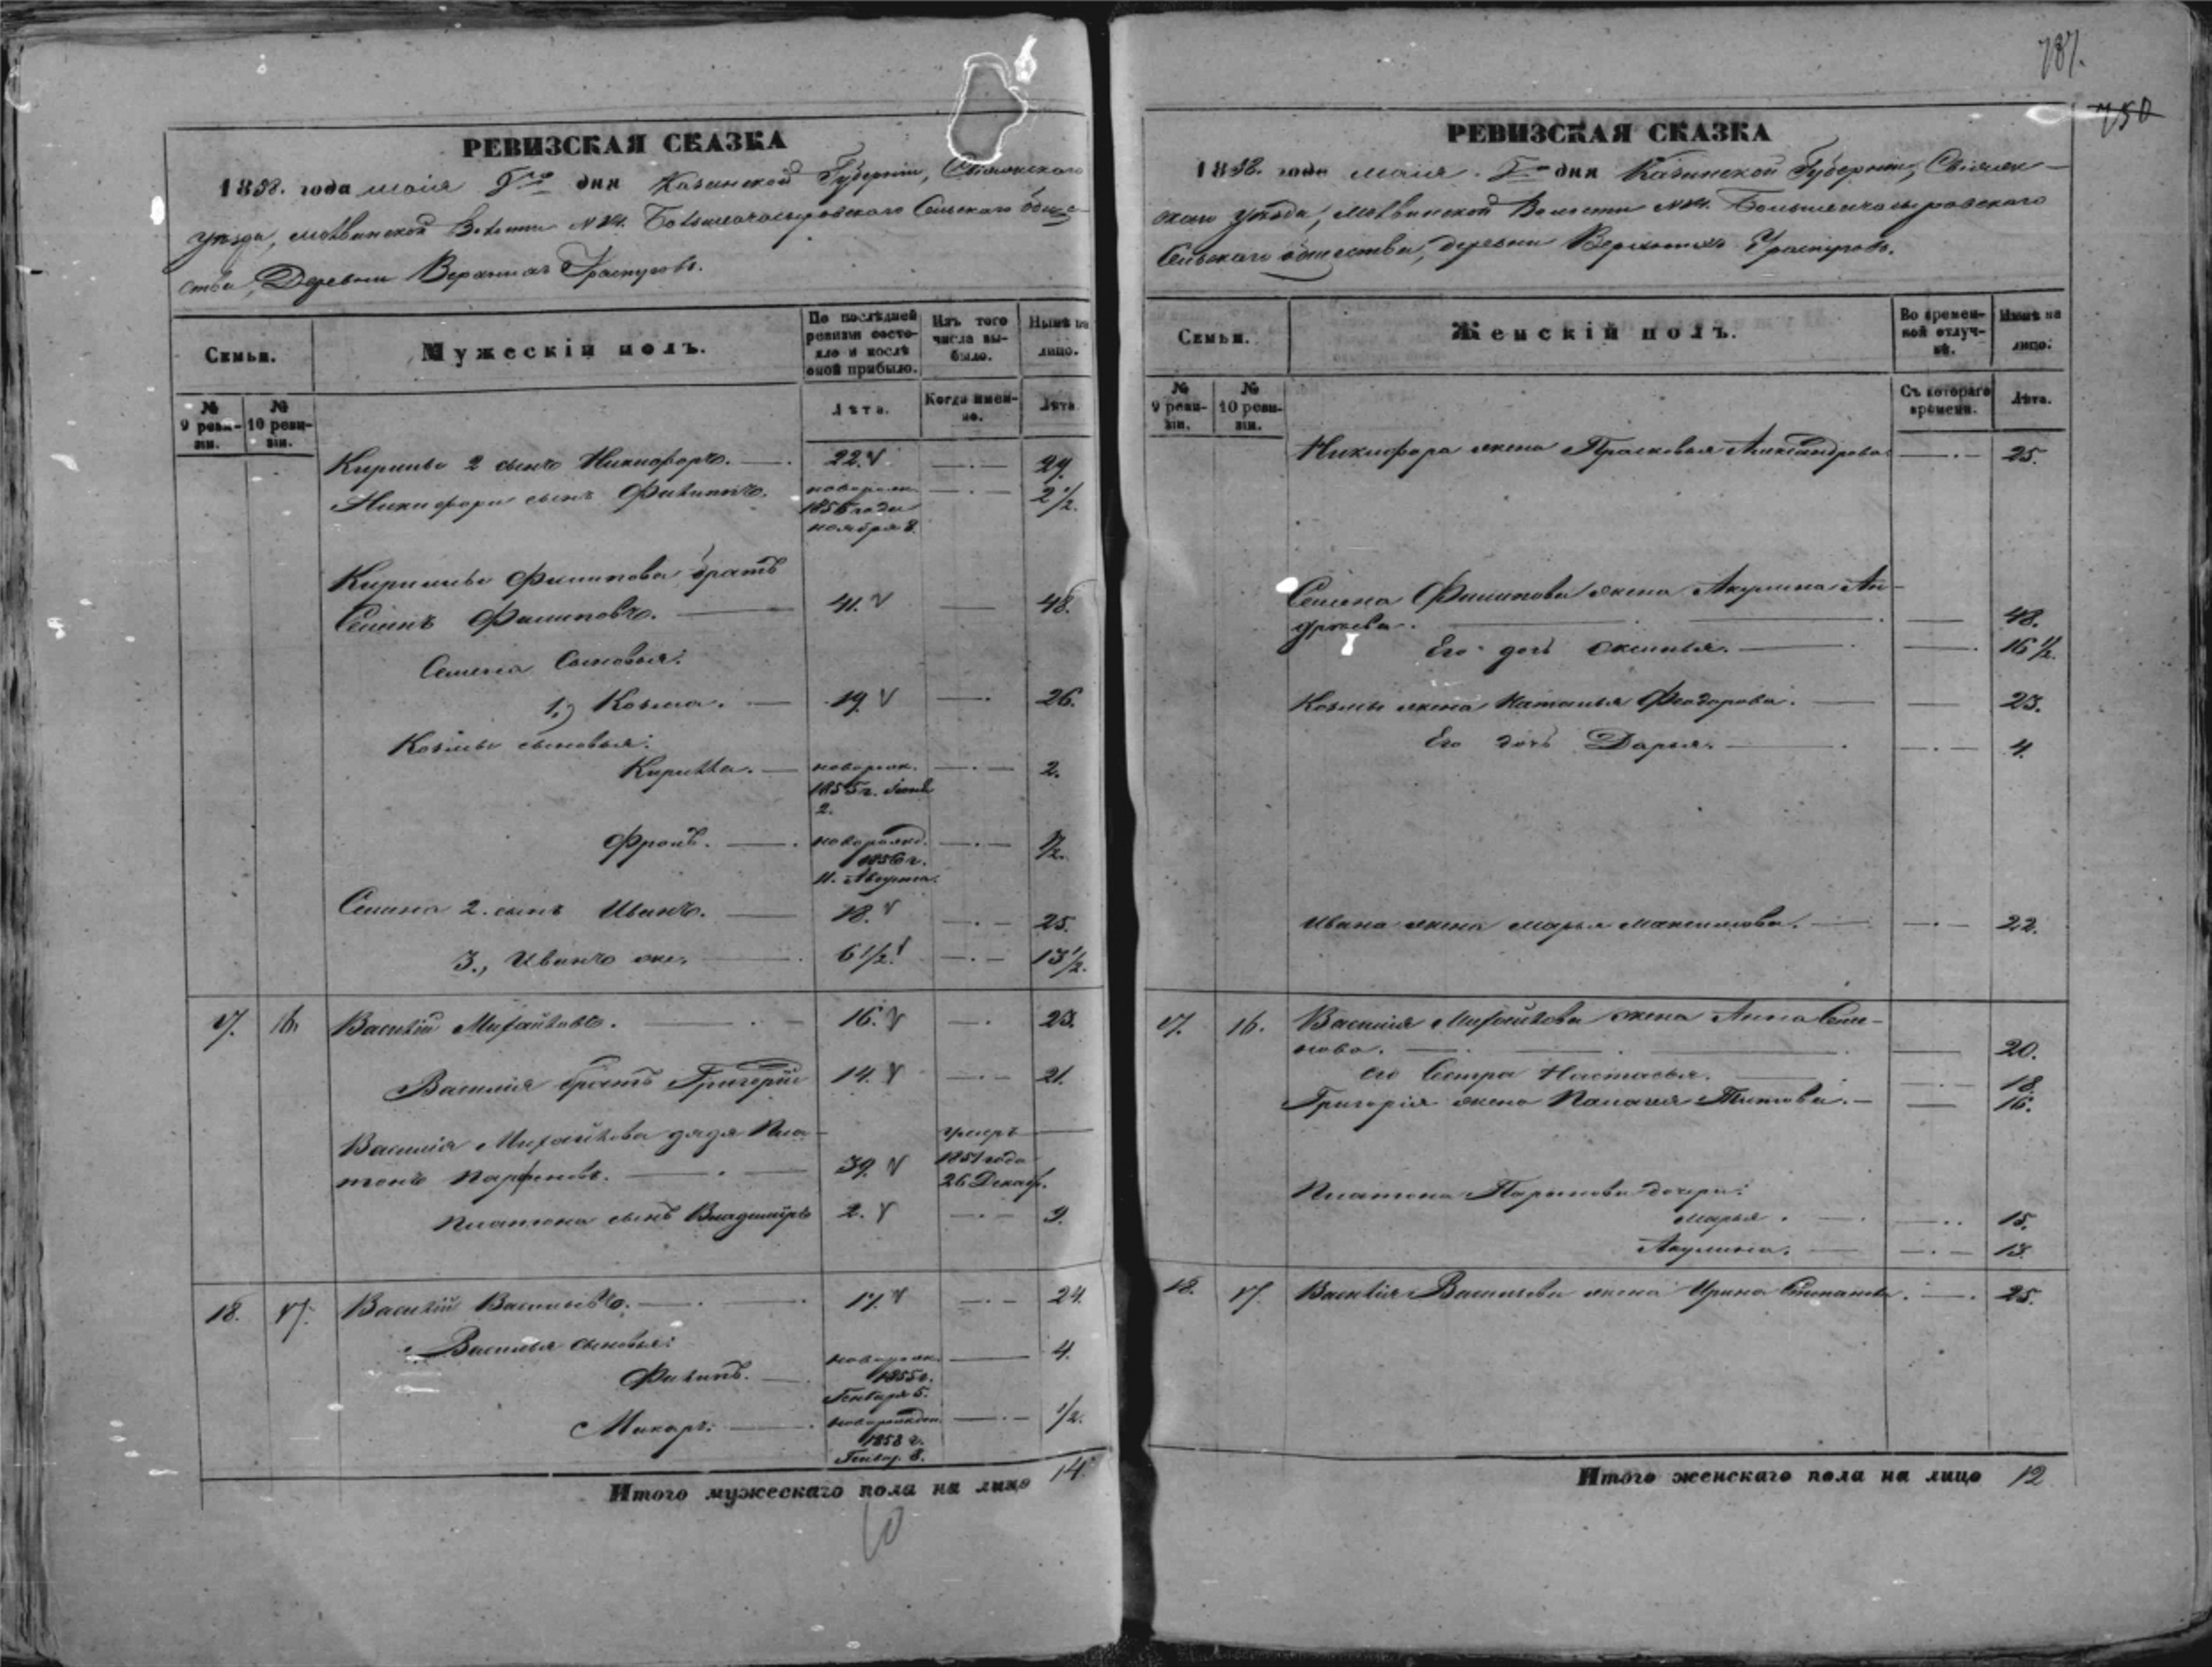 РЕВИЗСКАЯ СКАЗКА
1858. года маія 5го дня Казанской Губерніи, Свіяжскаго
уѣзда, Матвинской Волости
Сельскаго общес-
тва, Деревни Верхнихъ
Семьи.
Мужескій полъ.
По послѣдней ревизіи состояло и послѣ оной прибыло.
Изъ того числа выбыло.
Нынѣ на лицо.
№ 9 ревизіи.
№ 10 ревизіи.
Лѣта.
Когда именно.
Лѣта.
Кирилы 2 сынъ Никифоръ. 22. 29.
Никифора сынъ Филиппъ. новорожд. 2 1/2.
1855 года
ноября 8.
Кирилы Филипова братъ
Семенъ Филиповъ. 41. 48.
Семена Сыновья:
1.) Козма. 19. 26.
Козмы сыновья:
Кирилла. новорож. 2.
1855 г. Іюня
2.
Фролъ. новорожд. 1/2.
1856 г.
11. Августа.
Семена 2. сынъ Иванъ. 18. 25.
3., Иванъ же. 6 1/2. 13 1/2.
17. 16. Василій Михайловъ. 16. 23.
Василія братъ Григорій 14. 21.
Василія Михайлова дядя Пла- умеръ
тонъ Парфеновъ. 39. 1851 года
26 Декаб.
Платона сынъ Владимиръ 2. 9.
18. 17. Василій Васильевъ. 17. 24.
Василья сыновья:
Филипъ. новорож. 4.
1855 г.
Генваря 5.
Макаръ. новорожден. 1/2.
1858 г.
Генвар. 8.
Итого мужескаго пола на лицо 14.
10
787.
750
РЕВИЗСКАЯ СКАЗКА
1858. года маія 5го дня Казанской Губерніи, Свіяж-
скаго уѣзда, Матвинской Волости
Сельскаго общества, деревни Верхнихъ
Семьи.
Женскій полъ.
Во временной отлучкѣ.
Нынѣ на лицо.
№ 9 ревизіи.
№ 10 ревизіи.
Съ котораго времени.
Лѣта.
Никифора жена Прасковья Александрова 25.
Семена Филипова жена Акулина Ан-
дреева. 48.
Его дочь Аксинья. 16 1/2.
Козмы жена Наталья Феодорова. 23.
Его дочь Дарья. 4.
Ивана жена Марья Максимова. 22.
17. 16. Василія Михайлова жена Анна Семе-
нова. 20.
его Сестра Настасья. 18.
Григорія жена Палагея Титова. 16.
Платона Парфенова дочери:
Марья. 15.
Акулина. 13.
18. 17. Василія Васильева жена Ирина Степанова. 25.
Итого женскаго пола на лицо 12